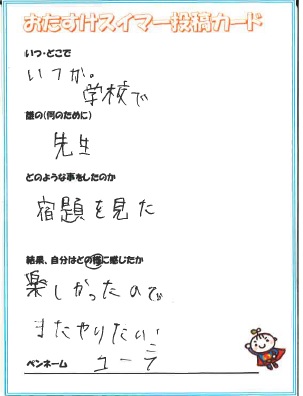 おたすけスイマー投稿カード
いつ・どこで
いつか。
学校で
誰の(何のために)
先生
どのような事をしたのか
宿題を見た
結果、自分はどの様に感じたか
楽しかったので
またやりたい!
ペンネーム ユーラ